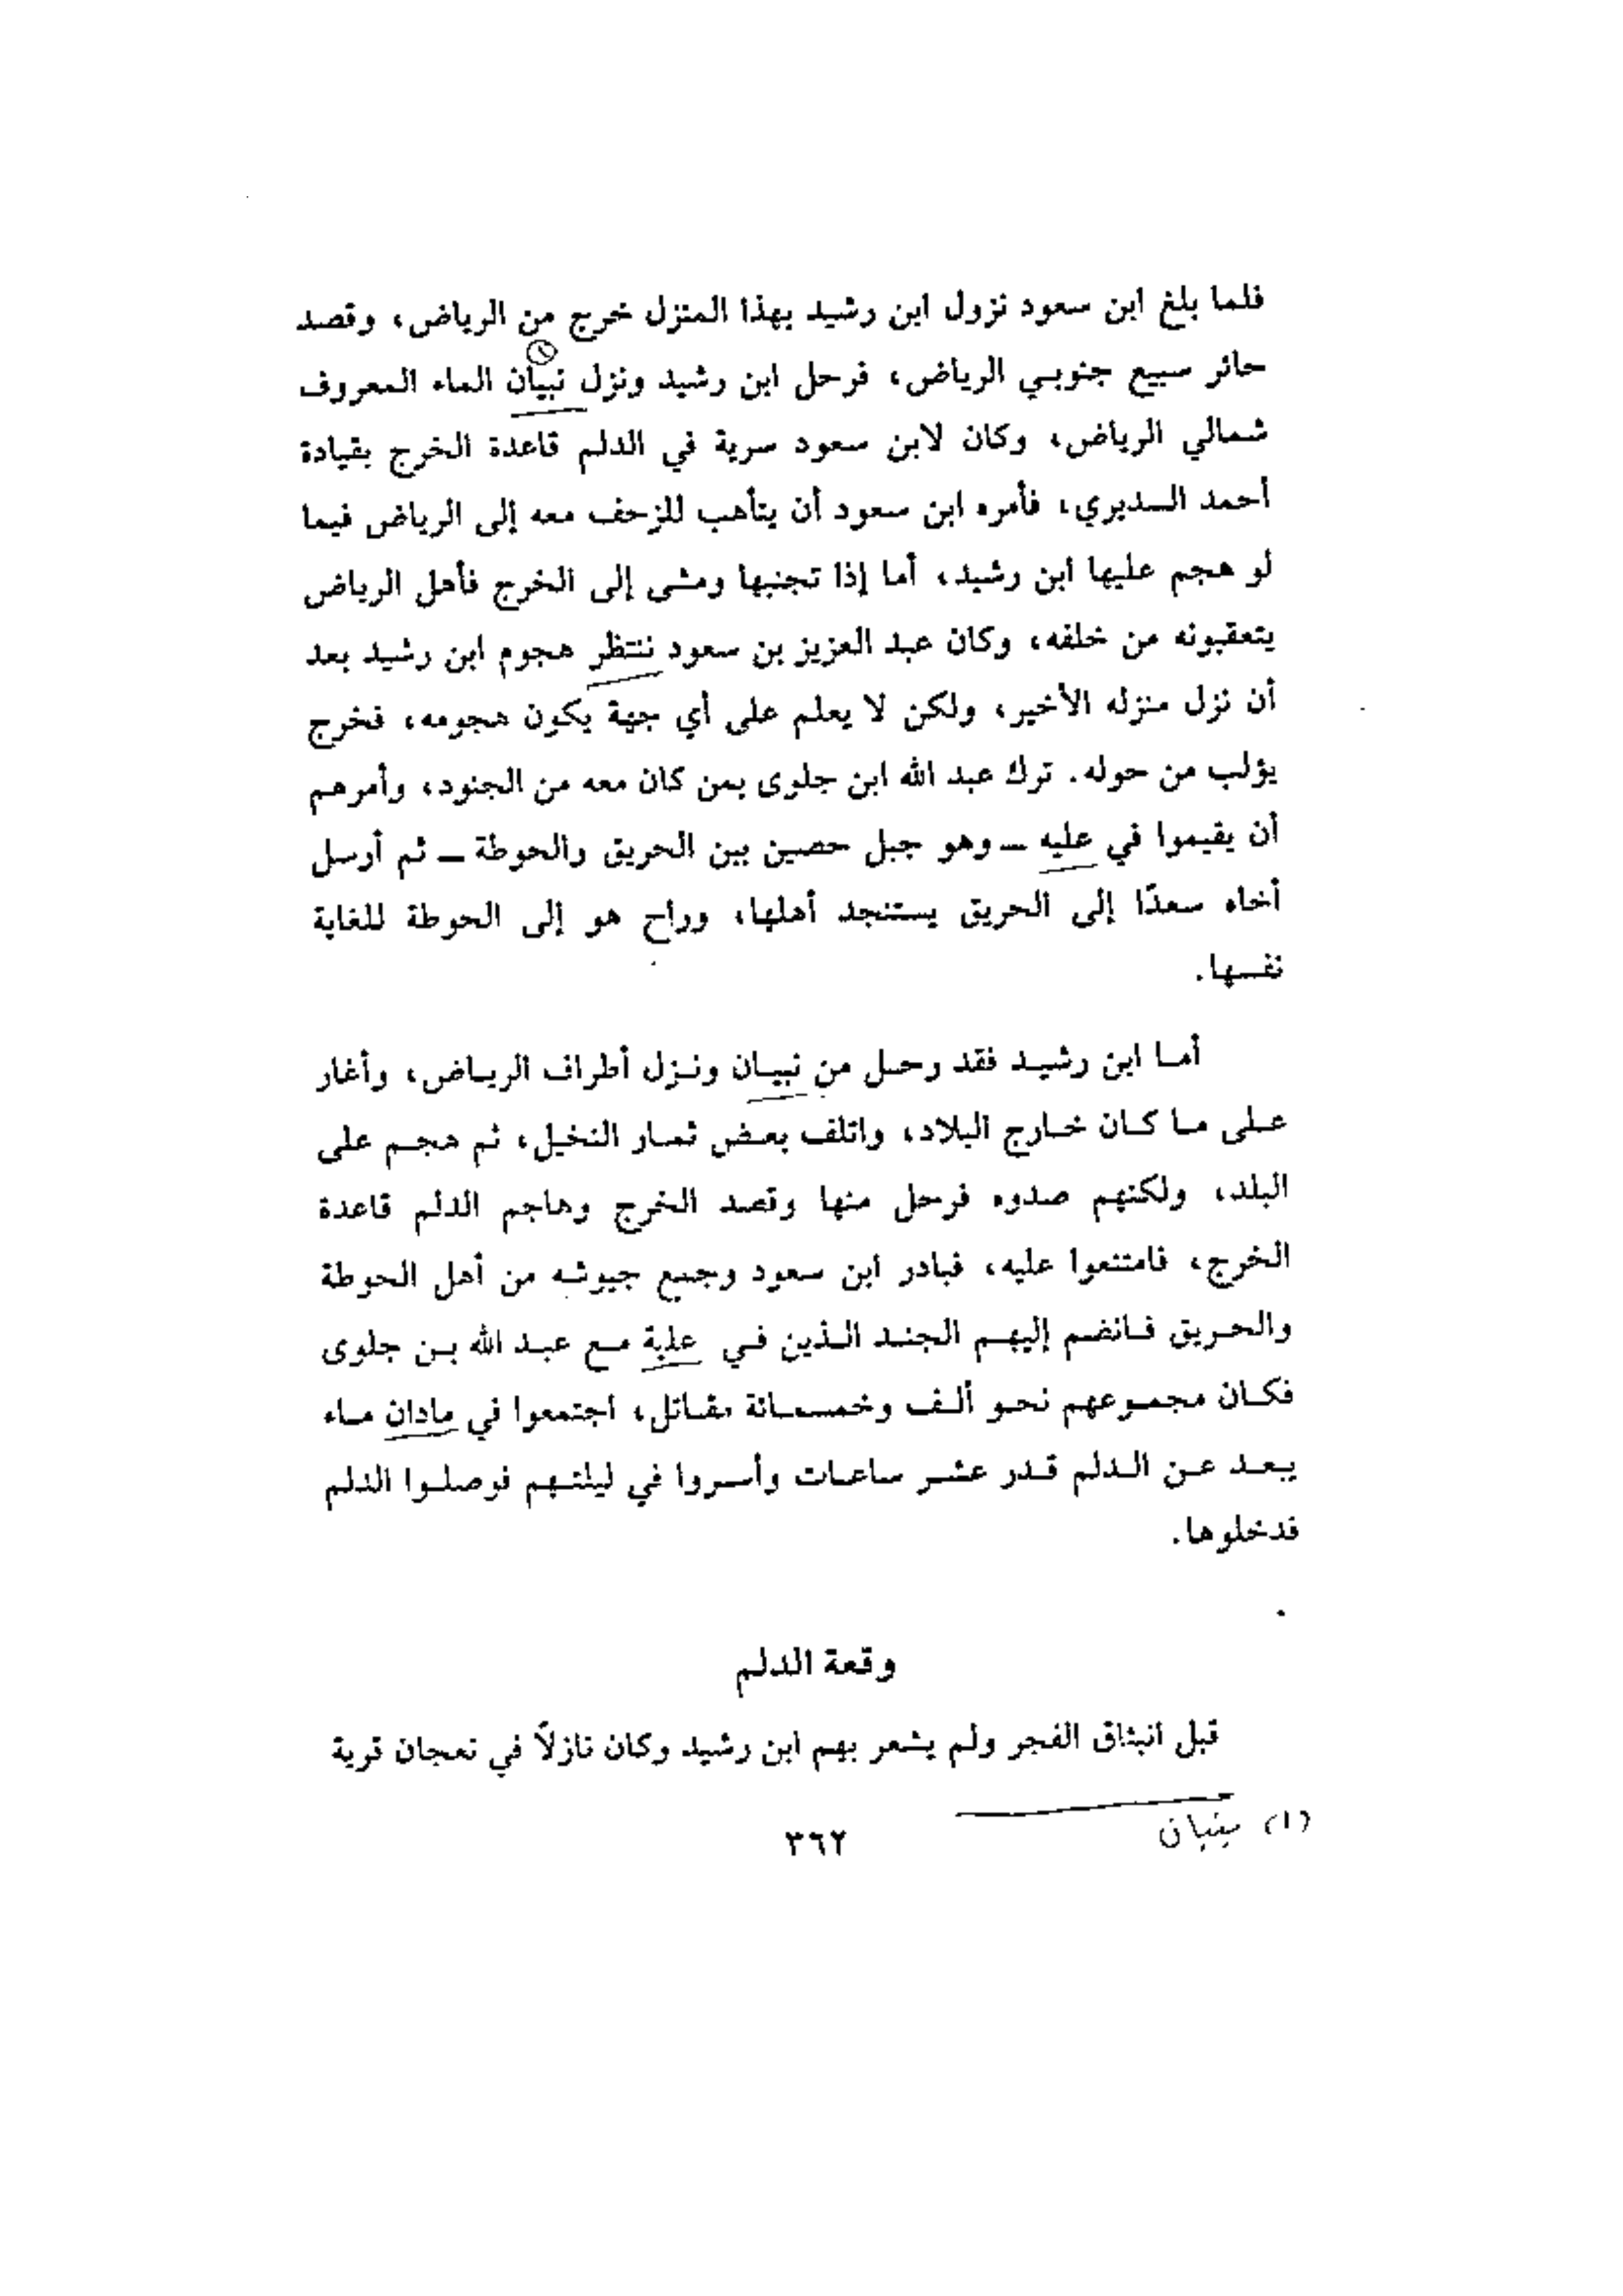 فلما بلغ ابن سعود نزول ابن رشيد بهذا المنزل خرج من الرياض، وقصد
حائر سبيع جنوبي الرياض، فرحل ابن رشيد ونزل نبيان الماء المعروف
شمالي الرياض، وكان لابن سعود سرية في الدلم قاعدة الخرج بقيادة
أحمد السديري، فأمره ابن سعود أن يتأهب للزحف معه إلى الرياض فيما
لو هجم عليها ابن رشيد، أما إذا تجنبها ومشى إلى الخرج فأهل الرياض
يتعقبونه من خلفه، وكان عبد العزيز بن سعود ننتظر هجوم ابن رشيد بعد
أن نزل منزله الأخير، ولكن لا يعلم على أي جهة يكون هجومه، فخرج
يؤلب من حوله. ترك عبد الله ابن جلوى بمن كان معه من الجنود، وأمرهم
أن يقيموا في عليه – وهو جبل حصين بين الحريق والحوطة – ثم أرسل
أخاه سعدًا إلى الحريق يستنجد أهلها، وراح هو إلى الحوطة للغاية
نفسها.
أما ابن رشيد فقد رحل من نبيان ونزل أطراف الرياض، وأغار
على ما كان خارج البلاد، واتلف بعض ثمار النخيل، ثم هجم على
البلد، ولكنهم صدوه فرحل منها وقصد الخرج وهاجم الدلم قاعدة
الخرج، فامتنعوا عليه، فبادر ابن سعود وجمع جيوشه من أهل الحوطة
والحريق فانضم إليهم الجند الذين في علية مع عبد الله بن جلوى
فكان مجموعهم نحو ألف وخمسمائة مقاتل، اجتمعوا في مادان ماء
يبعد عن الدلم قدر عشر ساعات وأسروا في ليلتهم فوصلوا الدلم
فدخلوها.
وقعة الدلم
قبل انبثاق الفجر ولم يشعر بهم ابن رشيد وكان نازلاً في نعجان قرية
(١) بنبان
٣٦٢